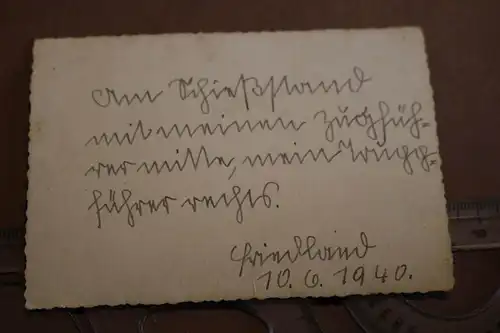 Am Schießstand
mit meinen Zugfüh-
rer mitte, mein Trupp-
führer rechts.
Friedland
10. 6. 1940.